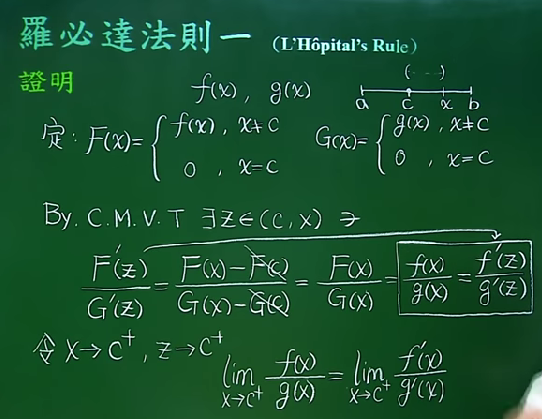 羅必達法則一 (L'Hôpital's Rule)
證明 f(x), g(x)
(...)
a c x b
定: F(x)={ f(x), x≠c
0, x=c
G(x)={ g(x), x≠c
0, x=c
By. C.M.V.T ∃z∈(c,x) ∋
F'(z)/G'(z) = (F(x)-F(c))/(G(x)-G(c)) = F(x)/G(x) = f(x)/g(x) = f'(z)/g'(z)
令 x→c⁺, z→c⁺
lim x→c⁺ f(x)/g(x) = lim x→c⁺ f'(x)/g'(x)